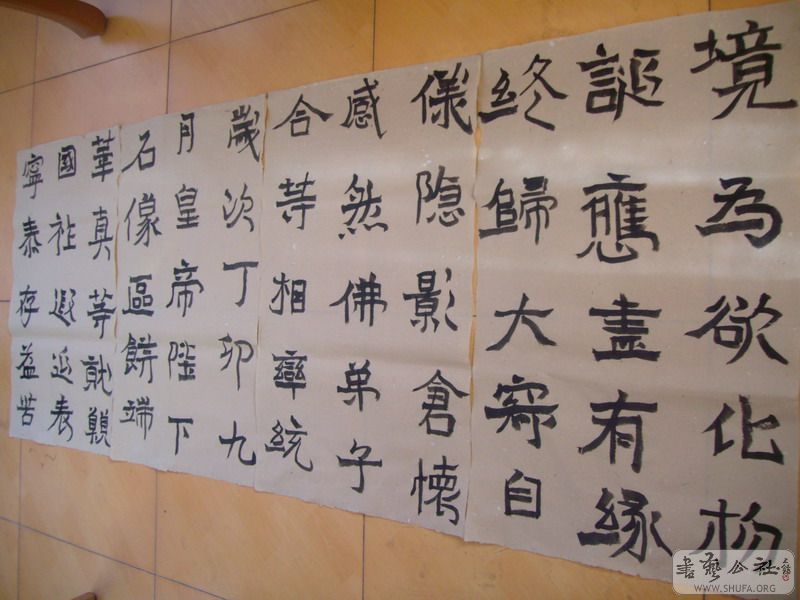 境為欲化物
誕應盡有緣
終歸大寂自
儀隐影倉懷
感然佛弟子
合芉相率統
歲次丁卯九
月皇帝陛下
石像區餅端
華真等就
國祉遐延表
寧泰存益苦
書藝公社
WWW.SHUFA.ORG